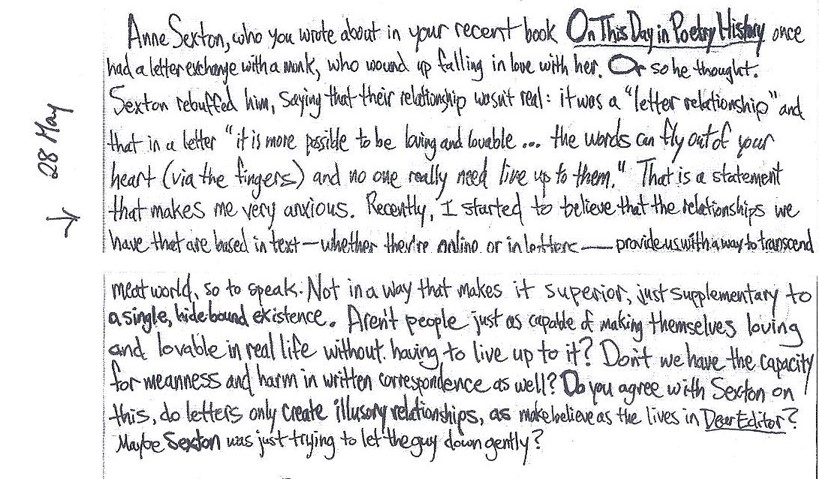 Anne Sexton, who you wrote about in your recent book On This Day in Poetry History once
had a letter exchange with a monk, who wound up falling in love with her. Or so he thought.
Sexton rebuffed him, saying that their relationship wasn't real: it was a "letter relationship" and
that in a letter "it is more possible to be loving and lovable... the words can fly out of your
heart (via the fingers) and no one really need live up to them." That is a statement
that makes me very anxious. Recently, I started to believe that the relationships we
have that are based in text—whether they're online or in letters—provide us with a way to transcend
meat world, so to speak. Not in a way that makes it superior, just supplementary to
a single, hidebound existence. Aren't people just as capable of making themselves loving
and lovable in real life without having to live up to it? Don't we have the capacity
for meanness and harm in written correspondence as well? Do you agree with Sexton on
this, do letters only create illusory relationships, as make believe as the lives in Dear Editor?
Maybe Sexton was just trying to let the guy down gently?
28 May →